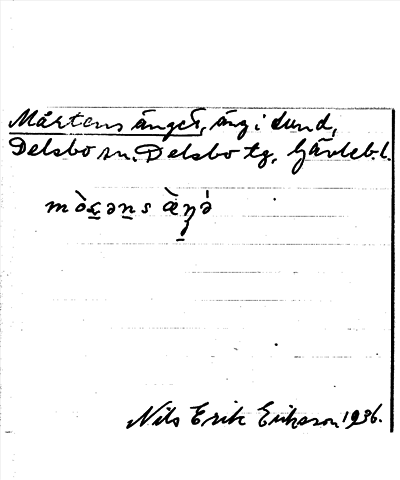 Mårtens änget, äng i Sund,
Delsbo sn. Delsbo tg, Gävleb.l.
Nils Erik Eriksson 1936.